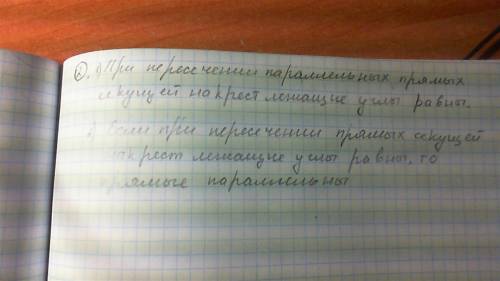 2. 1) При пересечении параллельных прямых
секущей накрест лежащие углы равны.
2) Если при пересечении прямых секущей
накрест лежащие углы равны, то
прямые параллельны